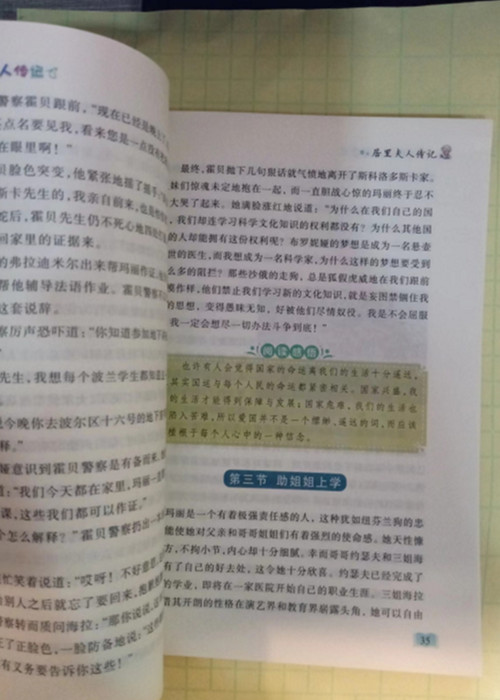 人传记
警察霍贝跟前，“现在已经是晚上
点名要见我，看来您是一点没有
在眼里啊！”
贝脸色突变，他紧张地摇了摇手
斯卡先生的，我亲自前来，也是
完后，霍贝先生仍不死心地四处
回家里的证据来。
的弗拉迪米尔出来帮玛丽作证
帮他辅导法语作业。霍贝警察
这套说辞。
察厉声恐吓道：“你知道参加地下
先生，我想每个波兰学生都知道
今晚你去波尔区十六号的地下
释。”
娅意识到霍贝警察是有备而来
道：“我们今天都在家里，玛丽一
课，这些我们都可以作证。”
个怎么解释？”霍贝警察扔出一
忙笑着说道：“哎呀！不好意思
给别人之后就忘了要回来，
警察转而质问海拉：“那你说说
正了正脸色，一脸防备地说：“这
有义务要告诉你这些！”
居里夫人传记
最终，霍贝抛下几句狠话就气愤地离开了斯科洛多斯卡家。
妹们惊魂未定地抱在一起，而一直胆战心惊的玛丽终于忍不
大哭了起来。她满脸涨红地说道：“为什么在我们自己的国
，我们却连学习科学文化知识的权利都没有？为什么其他国
的人却能拥有这份权利呢？布罗妮娅的梦想是成为一名悬壶
世的医生，而我想成为一名科学家，为什么这样的梦想要受到
么多的阻拦？那些沙俄的走狗，总是狐假虎威地在我们跟前
要作样，他们禁止我们学习新的文化知识，就是妄图禁锢住我
的思想，变得愚昧无知，好被他们尽情奴役。我是不会屈服
我一定会想尽一切办法斗争到底！”
阅读感悟
也许有人会觉得国家的命运离我们的生活十分遥远，
其实国运与每个人民的命运都紧密相关。国家兴盛，我
的生活才能得到保障与发展；国家危难，我们的生活也
陷入苦难。所以爱国并不是一个缥缈、遥远的词，而应该
植根于每个人心中的一种信念。
第三节 助姐姐上学
玛丽是一个有着极强责任感的人，这种犹如纽芬兰狗的忠
能使她对父亲和哥哥姐姐们有着强烈的使命感。她天性慷
方，不拘小节，内心却十分细腻。幸而哥哥约瑟夫和三姐海
有了自己的好去处，这令她十分欣喜。约瑟夫已经完成了
的学业，即将在一家医院开始自己的职业生涯。三姐海拉
着其开朗的性格在演艺界和教育界崭露头角，她可以自由
35